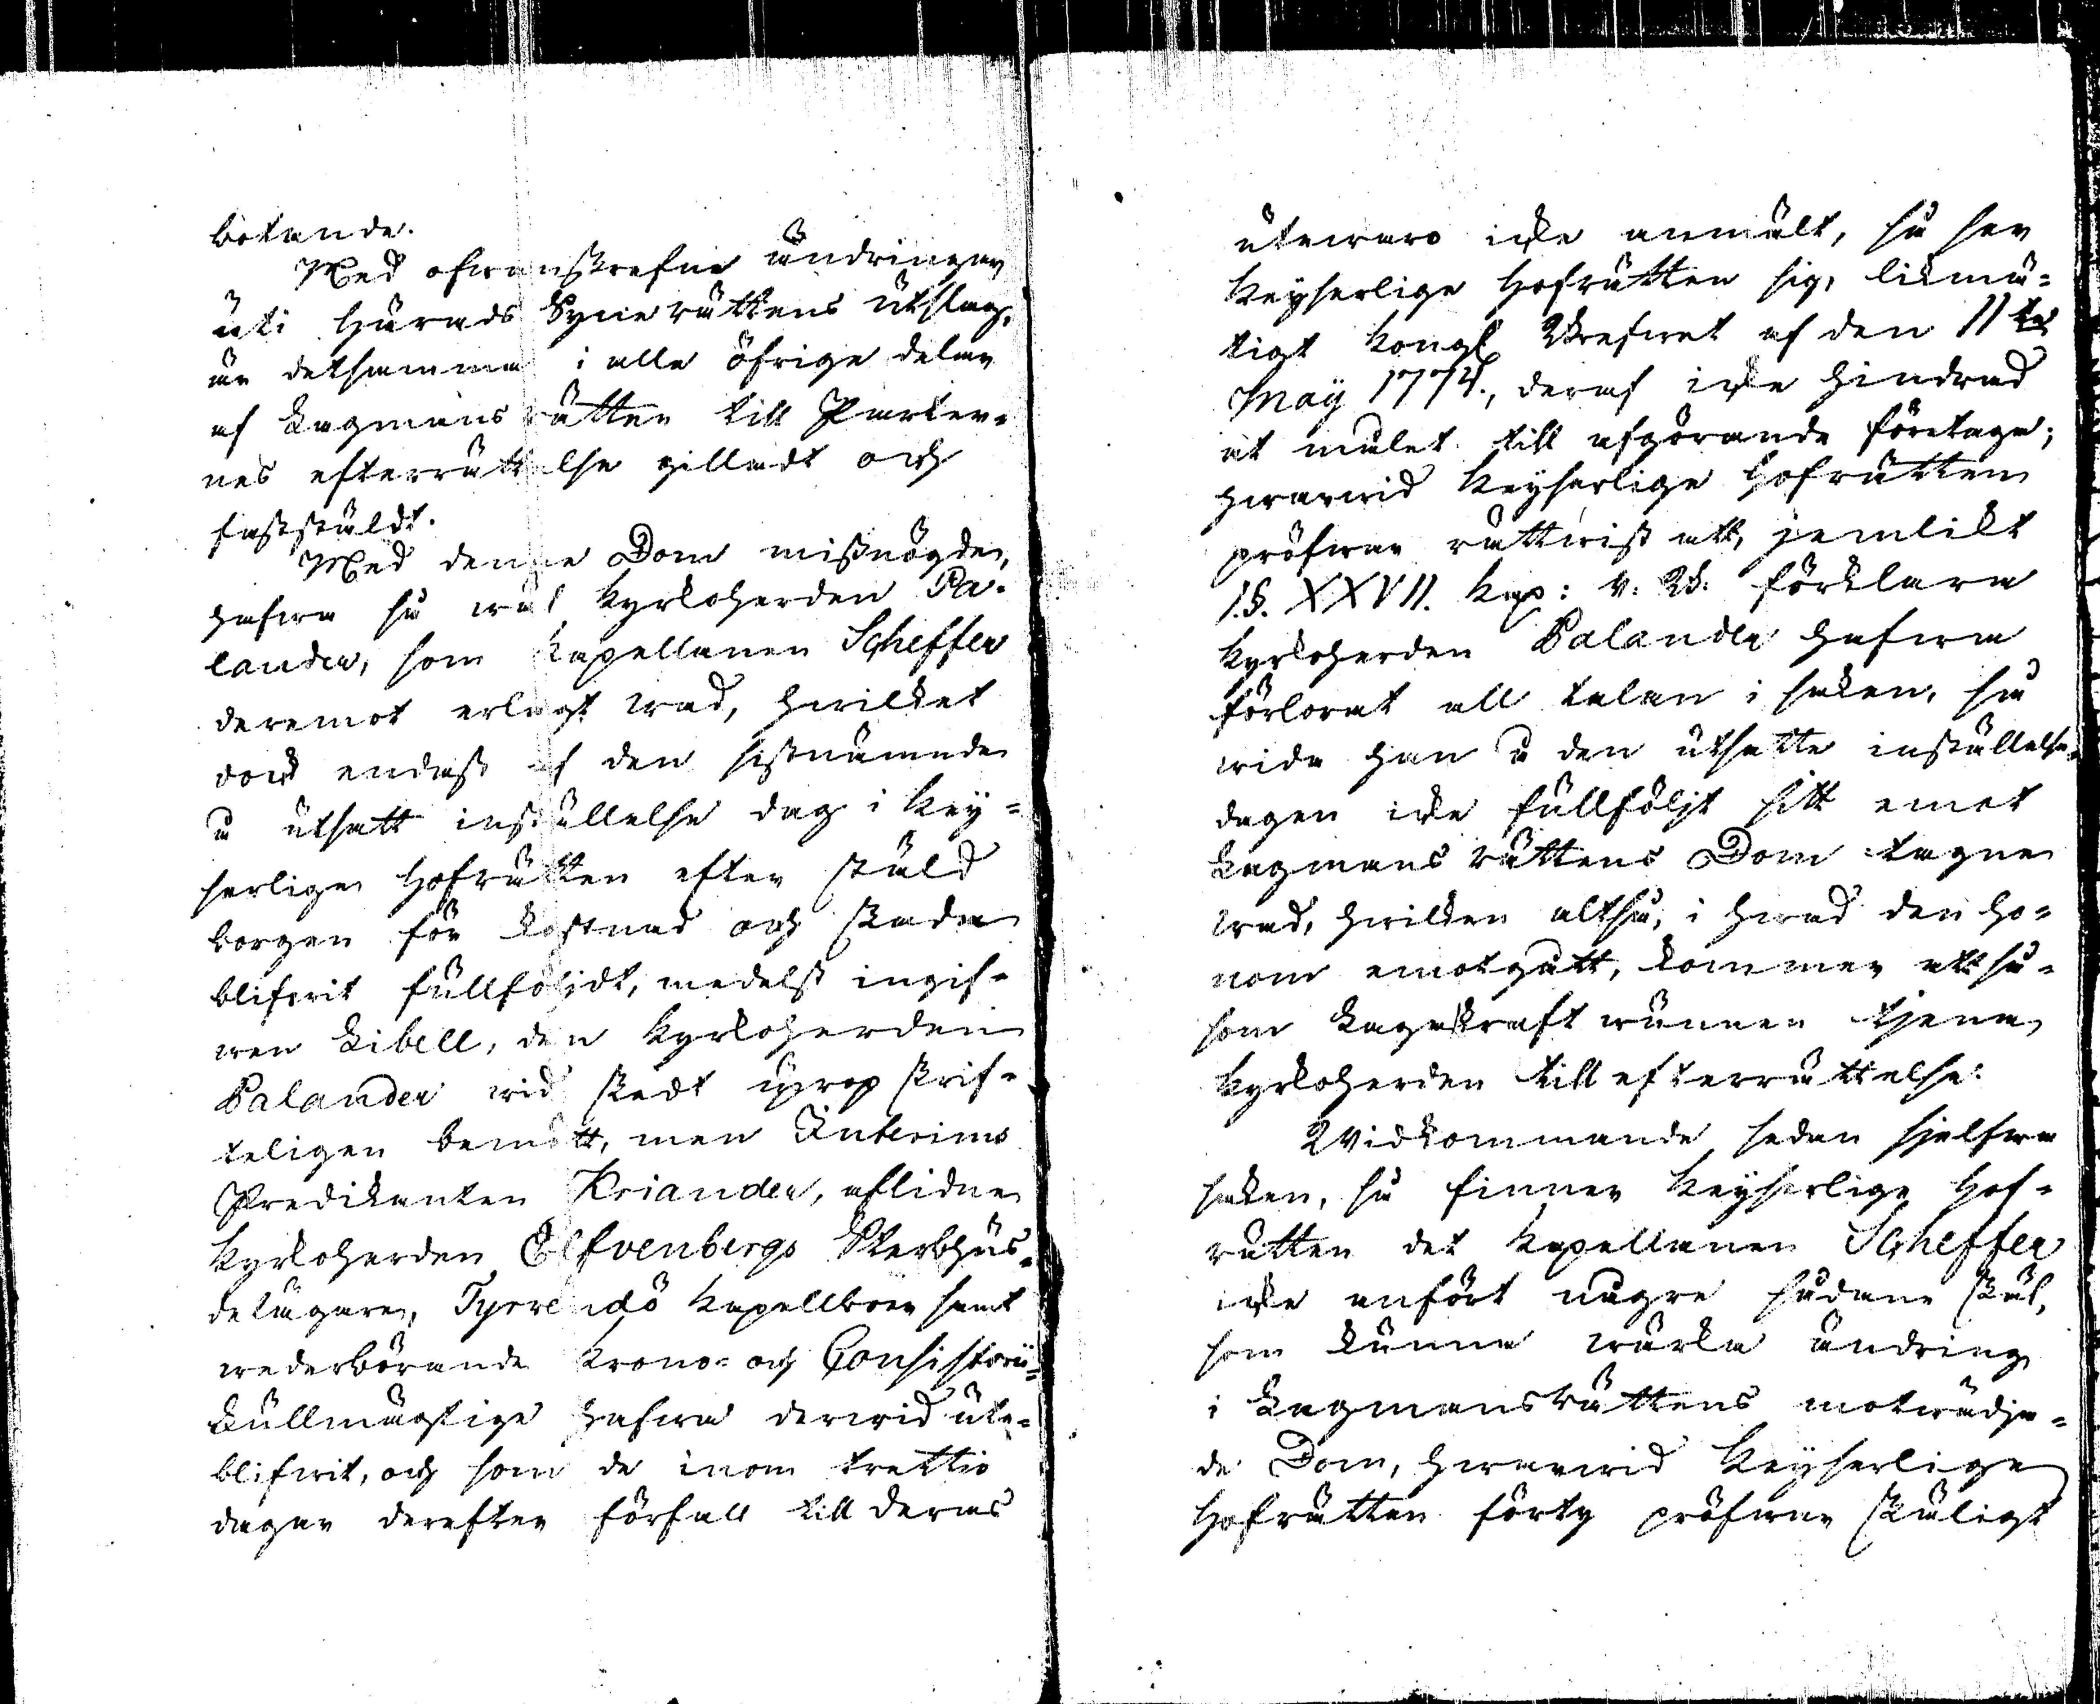 botande.
Med ofwanskrefne ändringar
uti Härads Syne rättens utslag,
är detsamma i alla öfrige delar
af Lagmans rätten till Parter-
nes efterrättelse gilladt och
fastställdt.
Med denne Dom missnögde,
hafwa så wäl Kyrkoherden Pa-
lander, som Kapellanen Scheffer
deremot erlagt wad, hwilket
dock endast af den sistnämnde
å utsatt inställelse dag i Key-
serlige Hofrätten efter stäld
borgen för kostnad och skada
blifwit fullföljdt, medelst ingif-
wen Libell, den Kyrkoherden
Palander wid skedt uprop skrif-
teligen bemött, men Interims
Predikanten Kriander, aflidne
Kyrkoherden Elfvenbergs Sterbhus-
delägare, Tyrvendö Kapellboer samt
wederbörande Krono- och Consistorii-
Fullmägtige hafwa derwid ute-
blifwit, och som de inom trettio
dagar derefter förfall till deras
utewaro icke anmält, så ser
Keyserlige Hofrätten sig, likmä-
tigt Kongl Brefwet af den 11te
May 1774., deraf icke hindrad
at målet till afgörande företaga;
hwarwid Keyserlige Hofrätten
pröfwar rättwist att, jemlikt
1.§. XXVII. Kap: R. B. förklara
Kyrkoherden Palander hafwa
förlorat all talan i saken, så
wida han å den utsatte inställelse-
dagen icke fullföljt sitt emot
Lagmans rättens Dom tagne
wad, hwilken altså, i hwad den ho-
nom emotgått, kommer att så-
som Lagakraft wunnen tjena
Kyrkoherden till efterrättelse.
Widkommande sedan sjelfwa
saken, så finner Keyserlige Hof-
rätten det Kapellanen Scheffer
icke anfört några sådane skäl,
som kunna wärka ändring
i Lagmansrättens motwädja-
de Dom, hwarwid Keyserlige
Hofrätten förty pröfwar skäligt